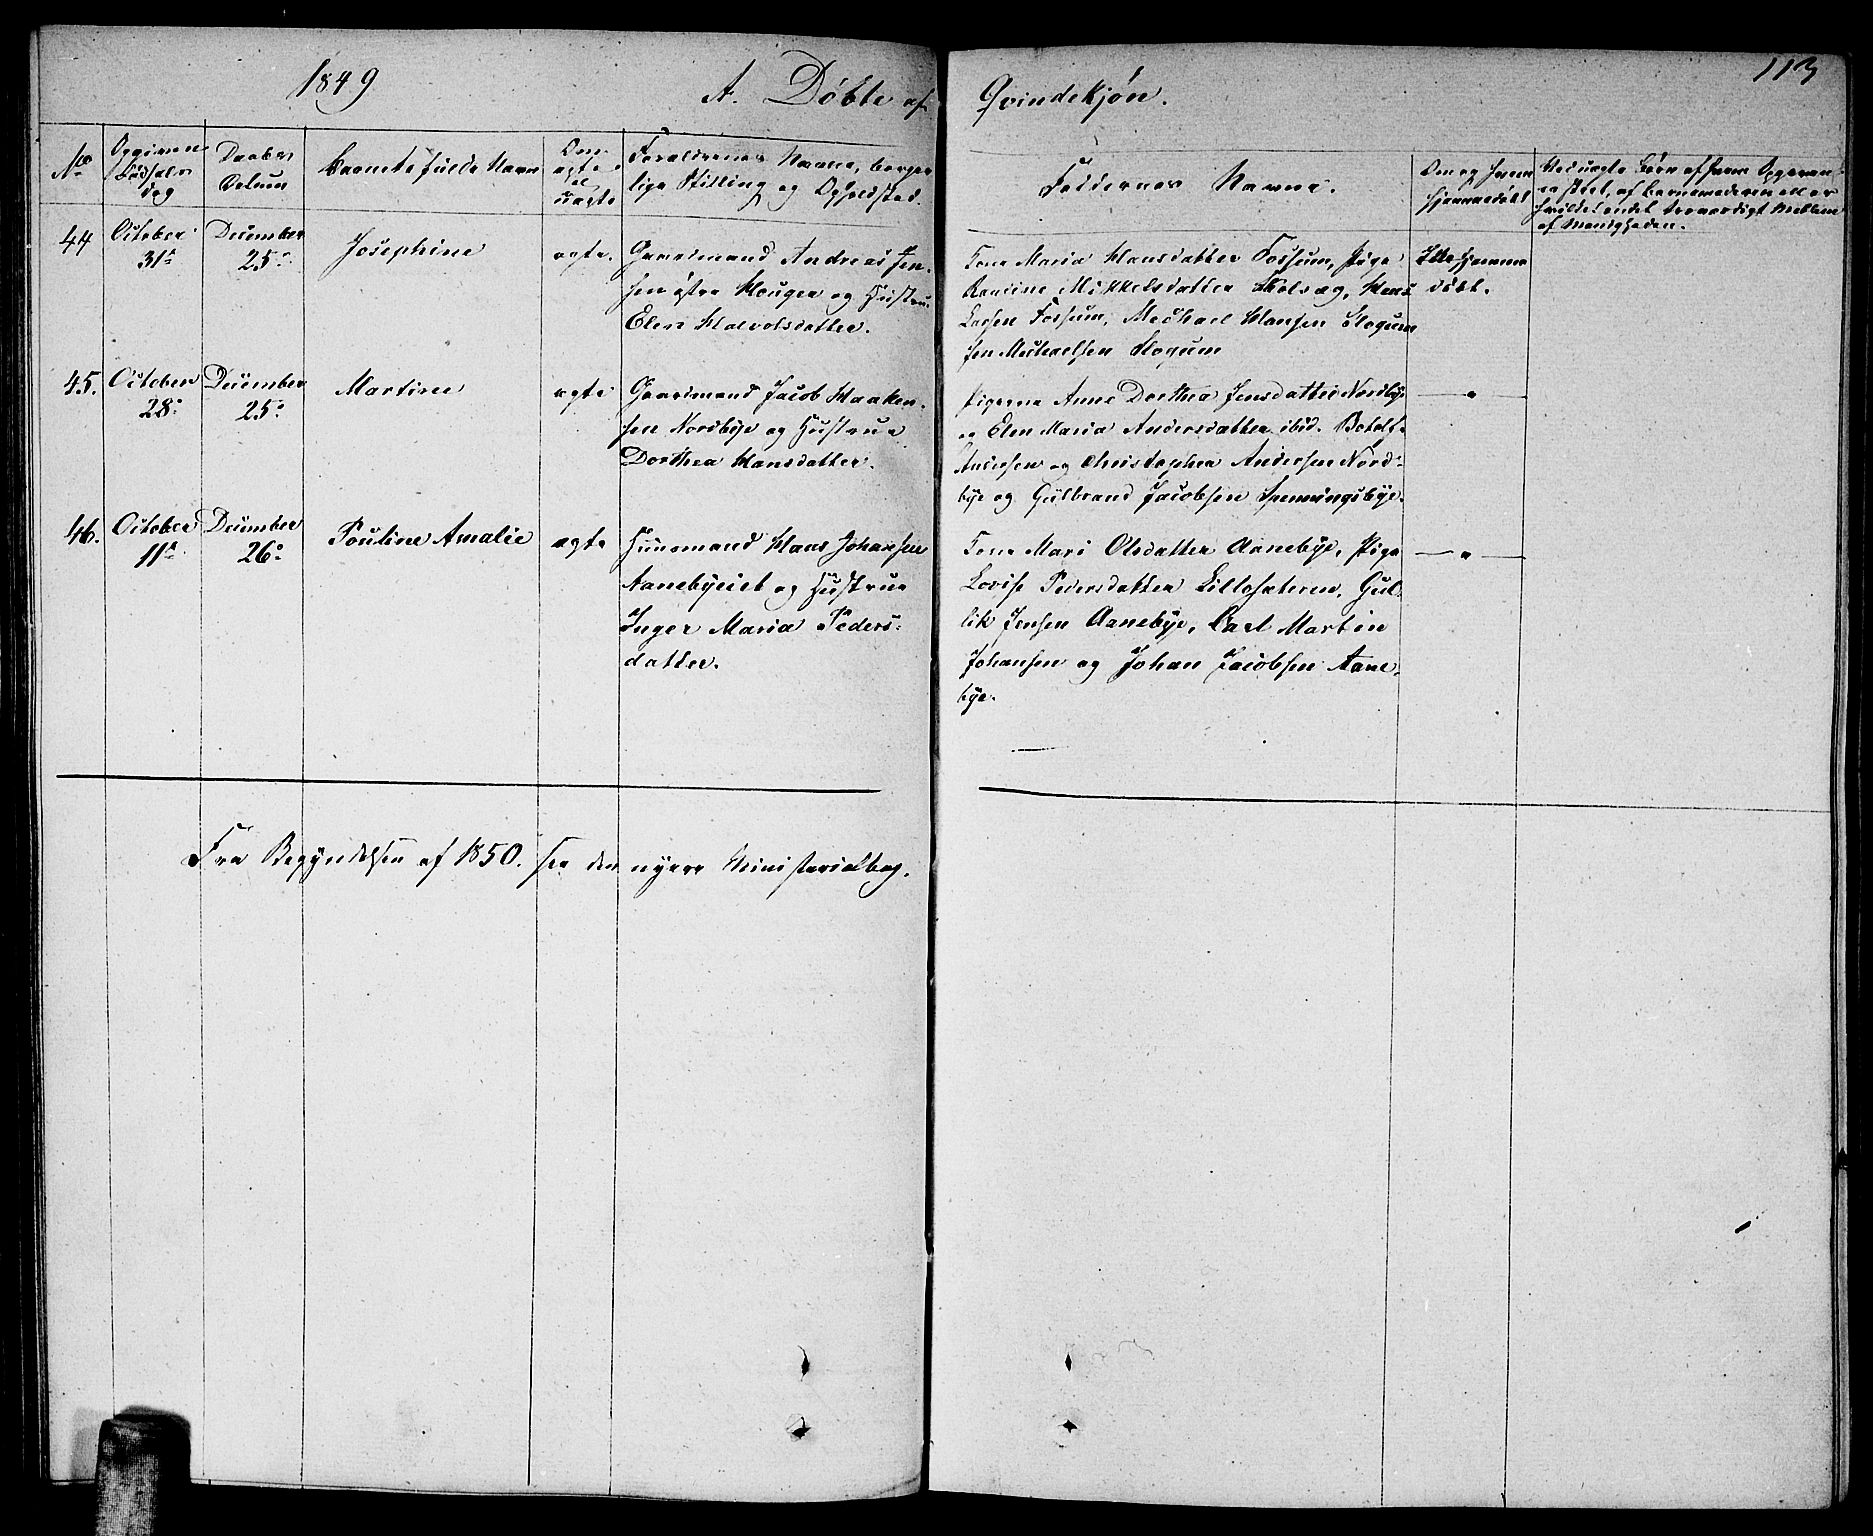 1849
A. Döbte af
Qvindekjön.
113
No
Opgiven Födsels dag
Daabs Datum
Barnets fulde Navn
Om ægte el. uægte
Forældrenes Navne, borger-
lige Stilling og Opholdsted.
Faddernes Navne.
Om og hvem hjemmedöbt
Ved uægte Börn af hvem Opgivan-
en skeet, af Barnemoderen eller
hvilket andet troværdigt Medlem
af Menigheden.
44
October 31te
December 25de
Josephine
ægte.
Gaardmand Andreas Jen-
sen østre Houger og Hustrue
Elen Halvolsdatter.
Kone Maria Hansdatter Fossum, Pige
Mikkelsdatter Hans
Larsen Fossum, Michael Hansen Skogum
Michaelsen Skogum
Ikke hjemme
döbt.
45.
October 28de
December 25de
Martine
ægte
Gaardmand Jacob Haaken-
sen Nordbye og Hustrue
Dorthea Hansdatter.
Pigerne Anne Dorthea Jensdatter Nordbye
og Elen Maria Andersdatter ibid. Botolf
Andersen og Christopher Andersen Nord-
bye og Gulbrand Jacobsen Spenningsbye.
— " —
46.
October 11te
December 26de
Pouline Amalie
ægte
Huusmand Hans Johansen
Aanebyeiet og Hustrue
Inger Maria Peders-
datter.
Kone Mari Olsdatter Aanebye, Pige
Lovise Pedersdatter Lillesæteren, Gul-
lik Jensen Aanebye, Carl Martin
Johansen og Johan Jacobsen Aane-
bye.
— " —
Fra Begyndelsen af 1850. see den nyere Ministerialbog.